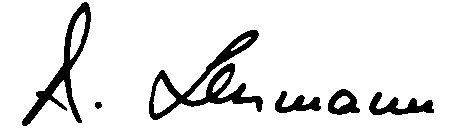 A. Lehmann